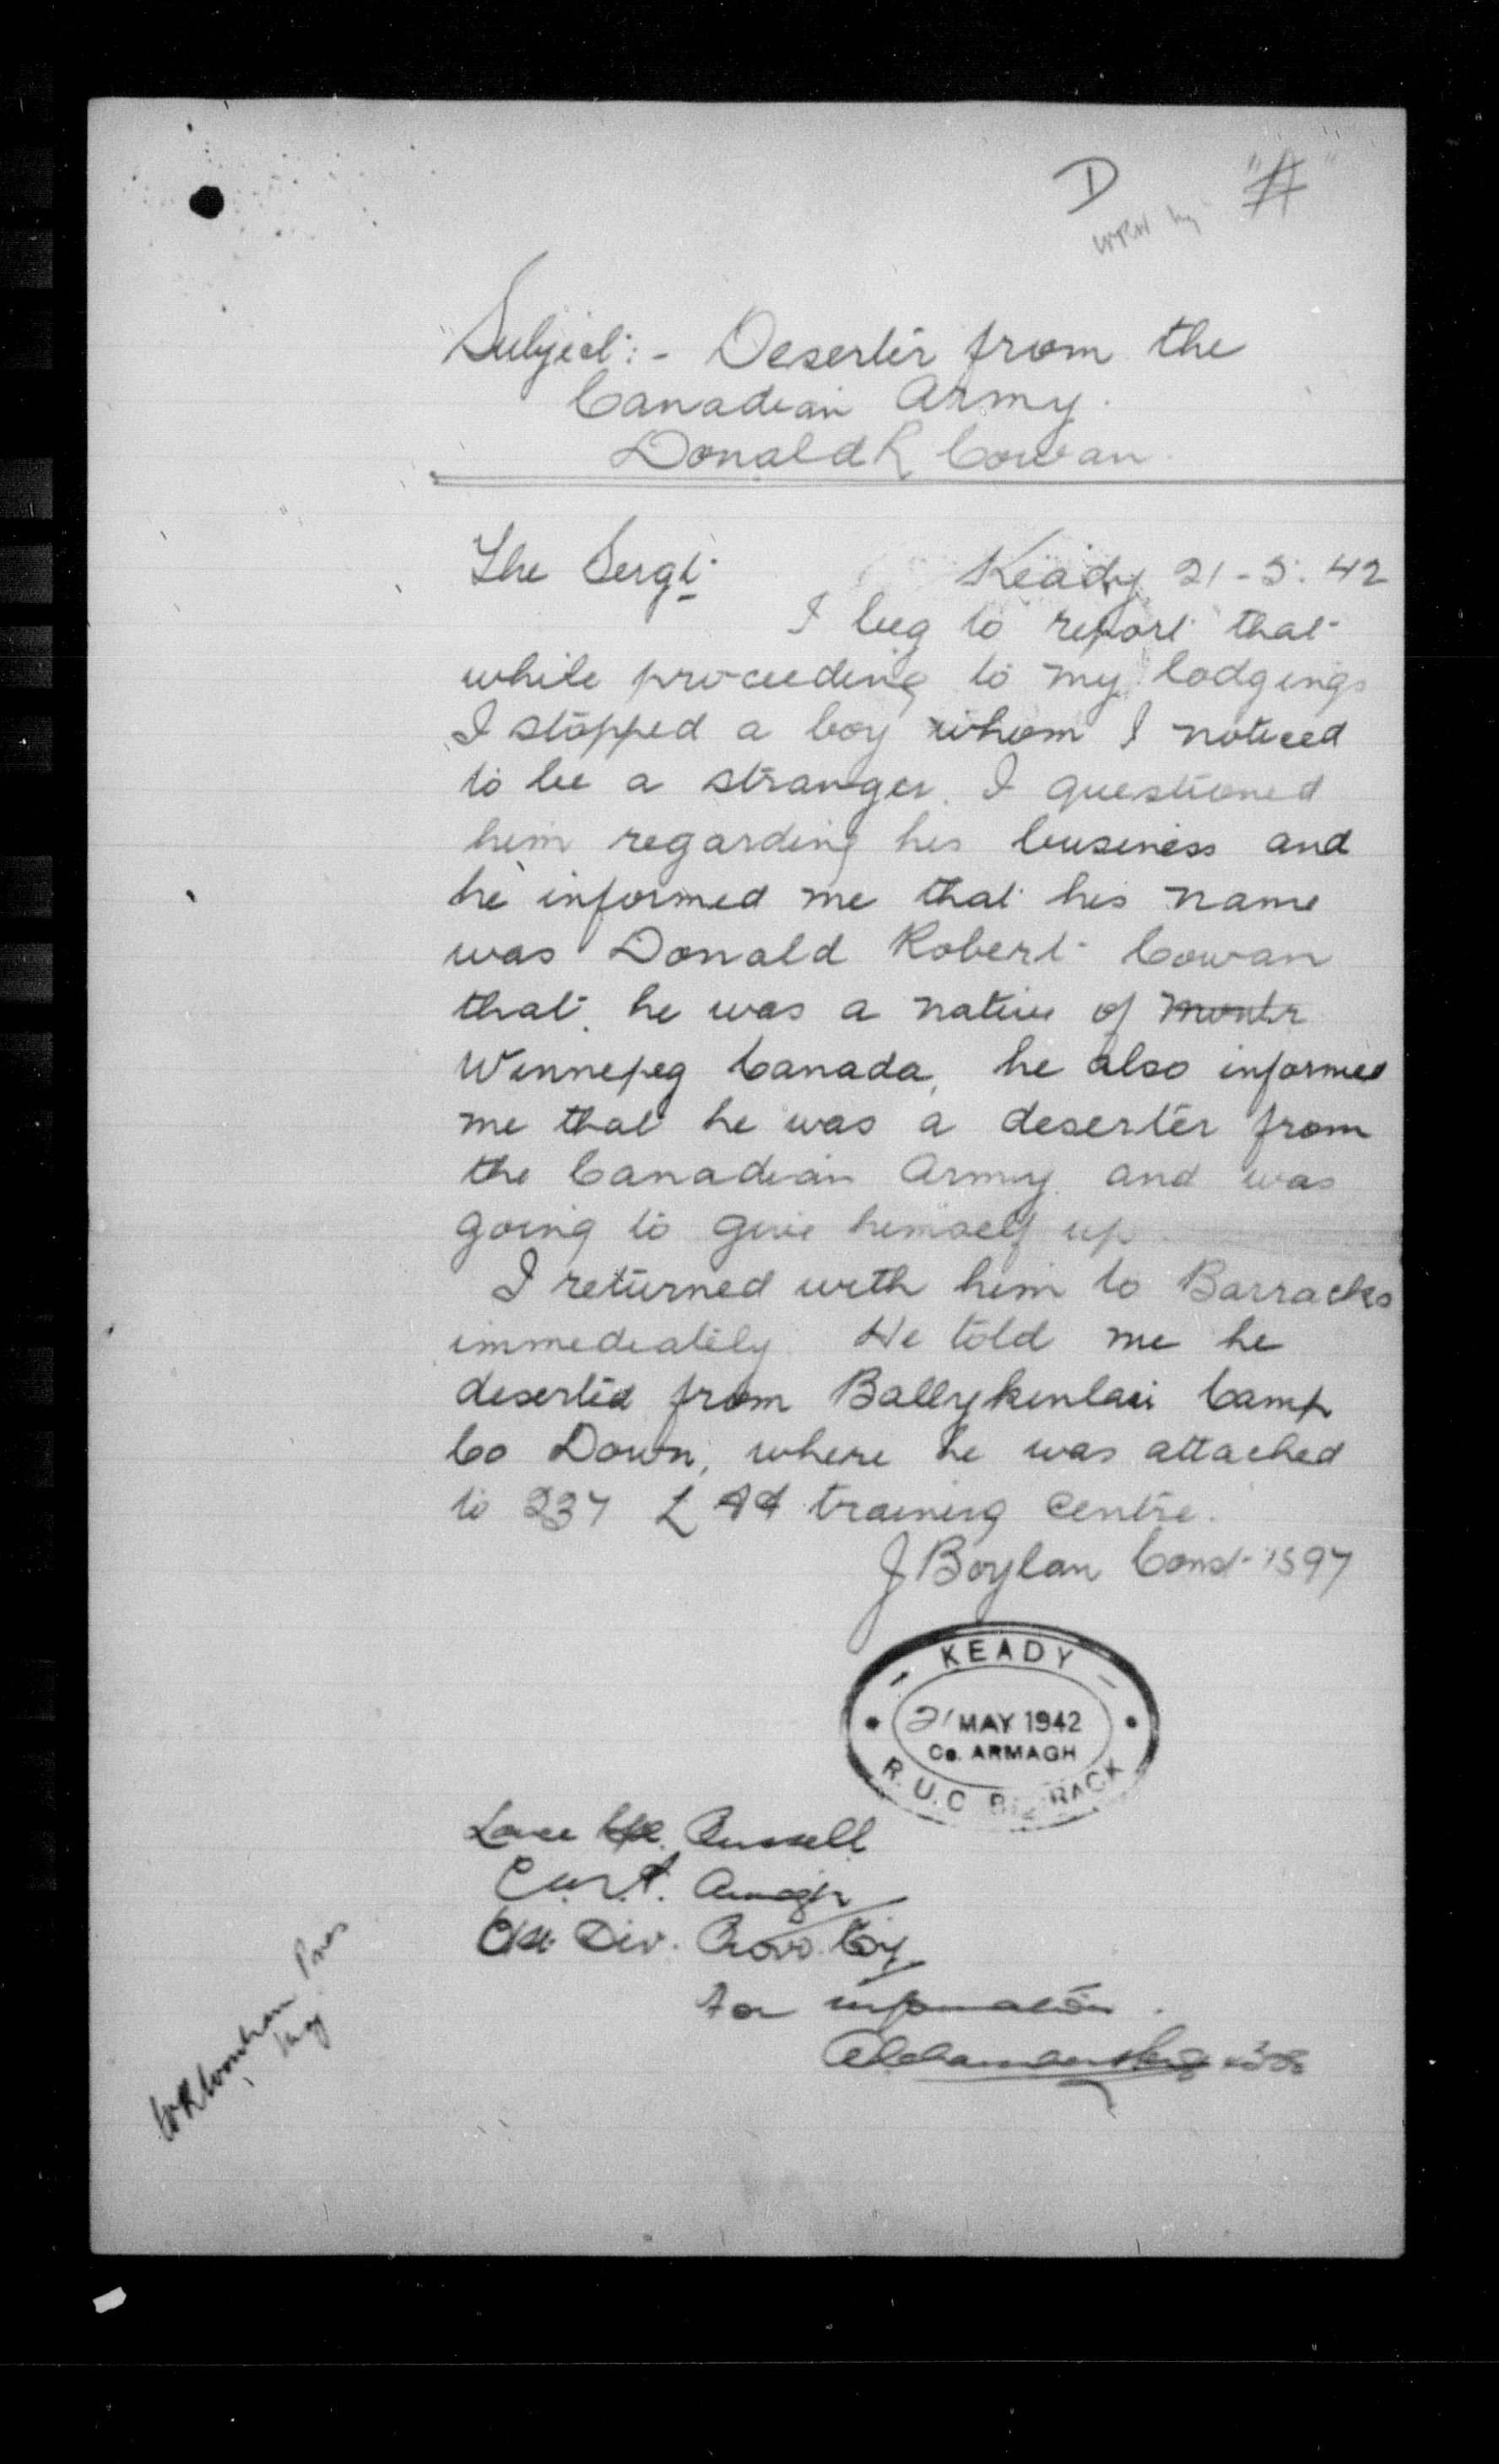 D "A"
Subject:- Deserter from the
Canadian Army.
Donald R Cowan.
The Sergt. Keady 21-5.42
I beg to report that
while proceeding to my lodgings
I stopped a boy whom I noticed
to be a stranger. I questioned
him regarding his business and
he informed me that his name
was Donald Robert Cowan
that he was a native of
Winnepeg Canada, he also informed
me that he was a deserter from
the Canadian Army and was
going to give himself up
I returned with him to Barracks
immediately. He told me he
deserted from Ballykinlar Camp
Co Down, where he was attached
to 237 L AA training Centre.
J Boylan Const. 1597
KEADY
21 MAY 1942
Co. ARMAGH
R.U.C BARRACK
Lance Russell
Div. Prov. Coy
For information.